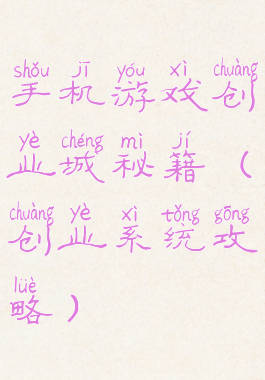 shǒu jī yóu xì chuàng
手机游戏创
yè chéng mì jí
业城秘籍（
chuàng yè xì tǒng gōng
创业系统攻
lüè
略）